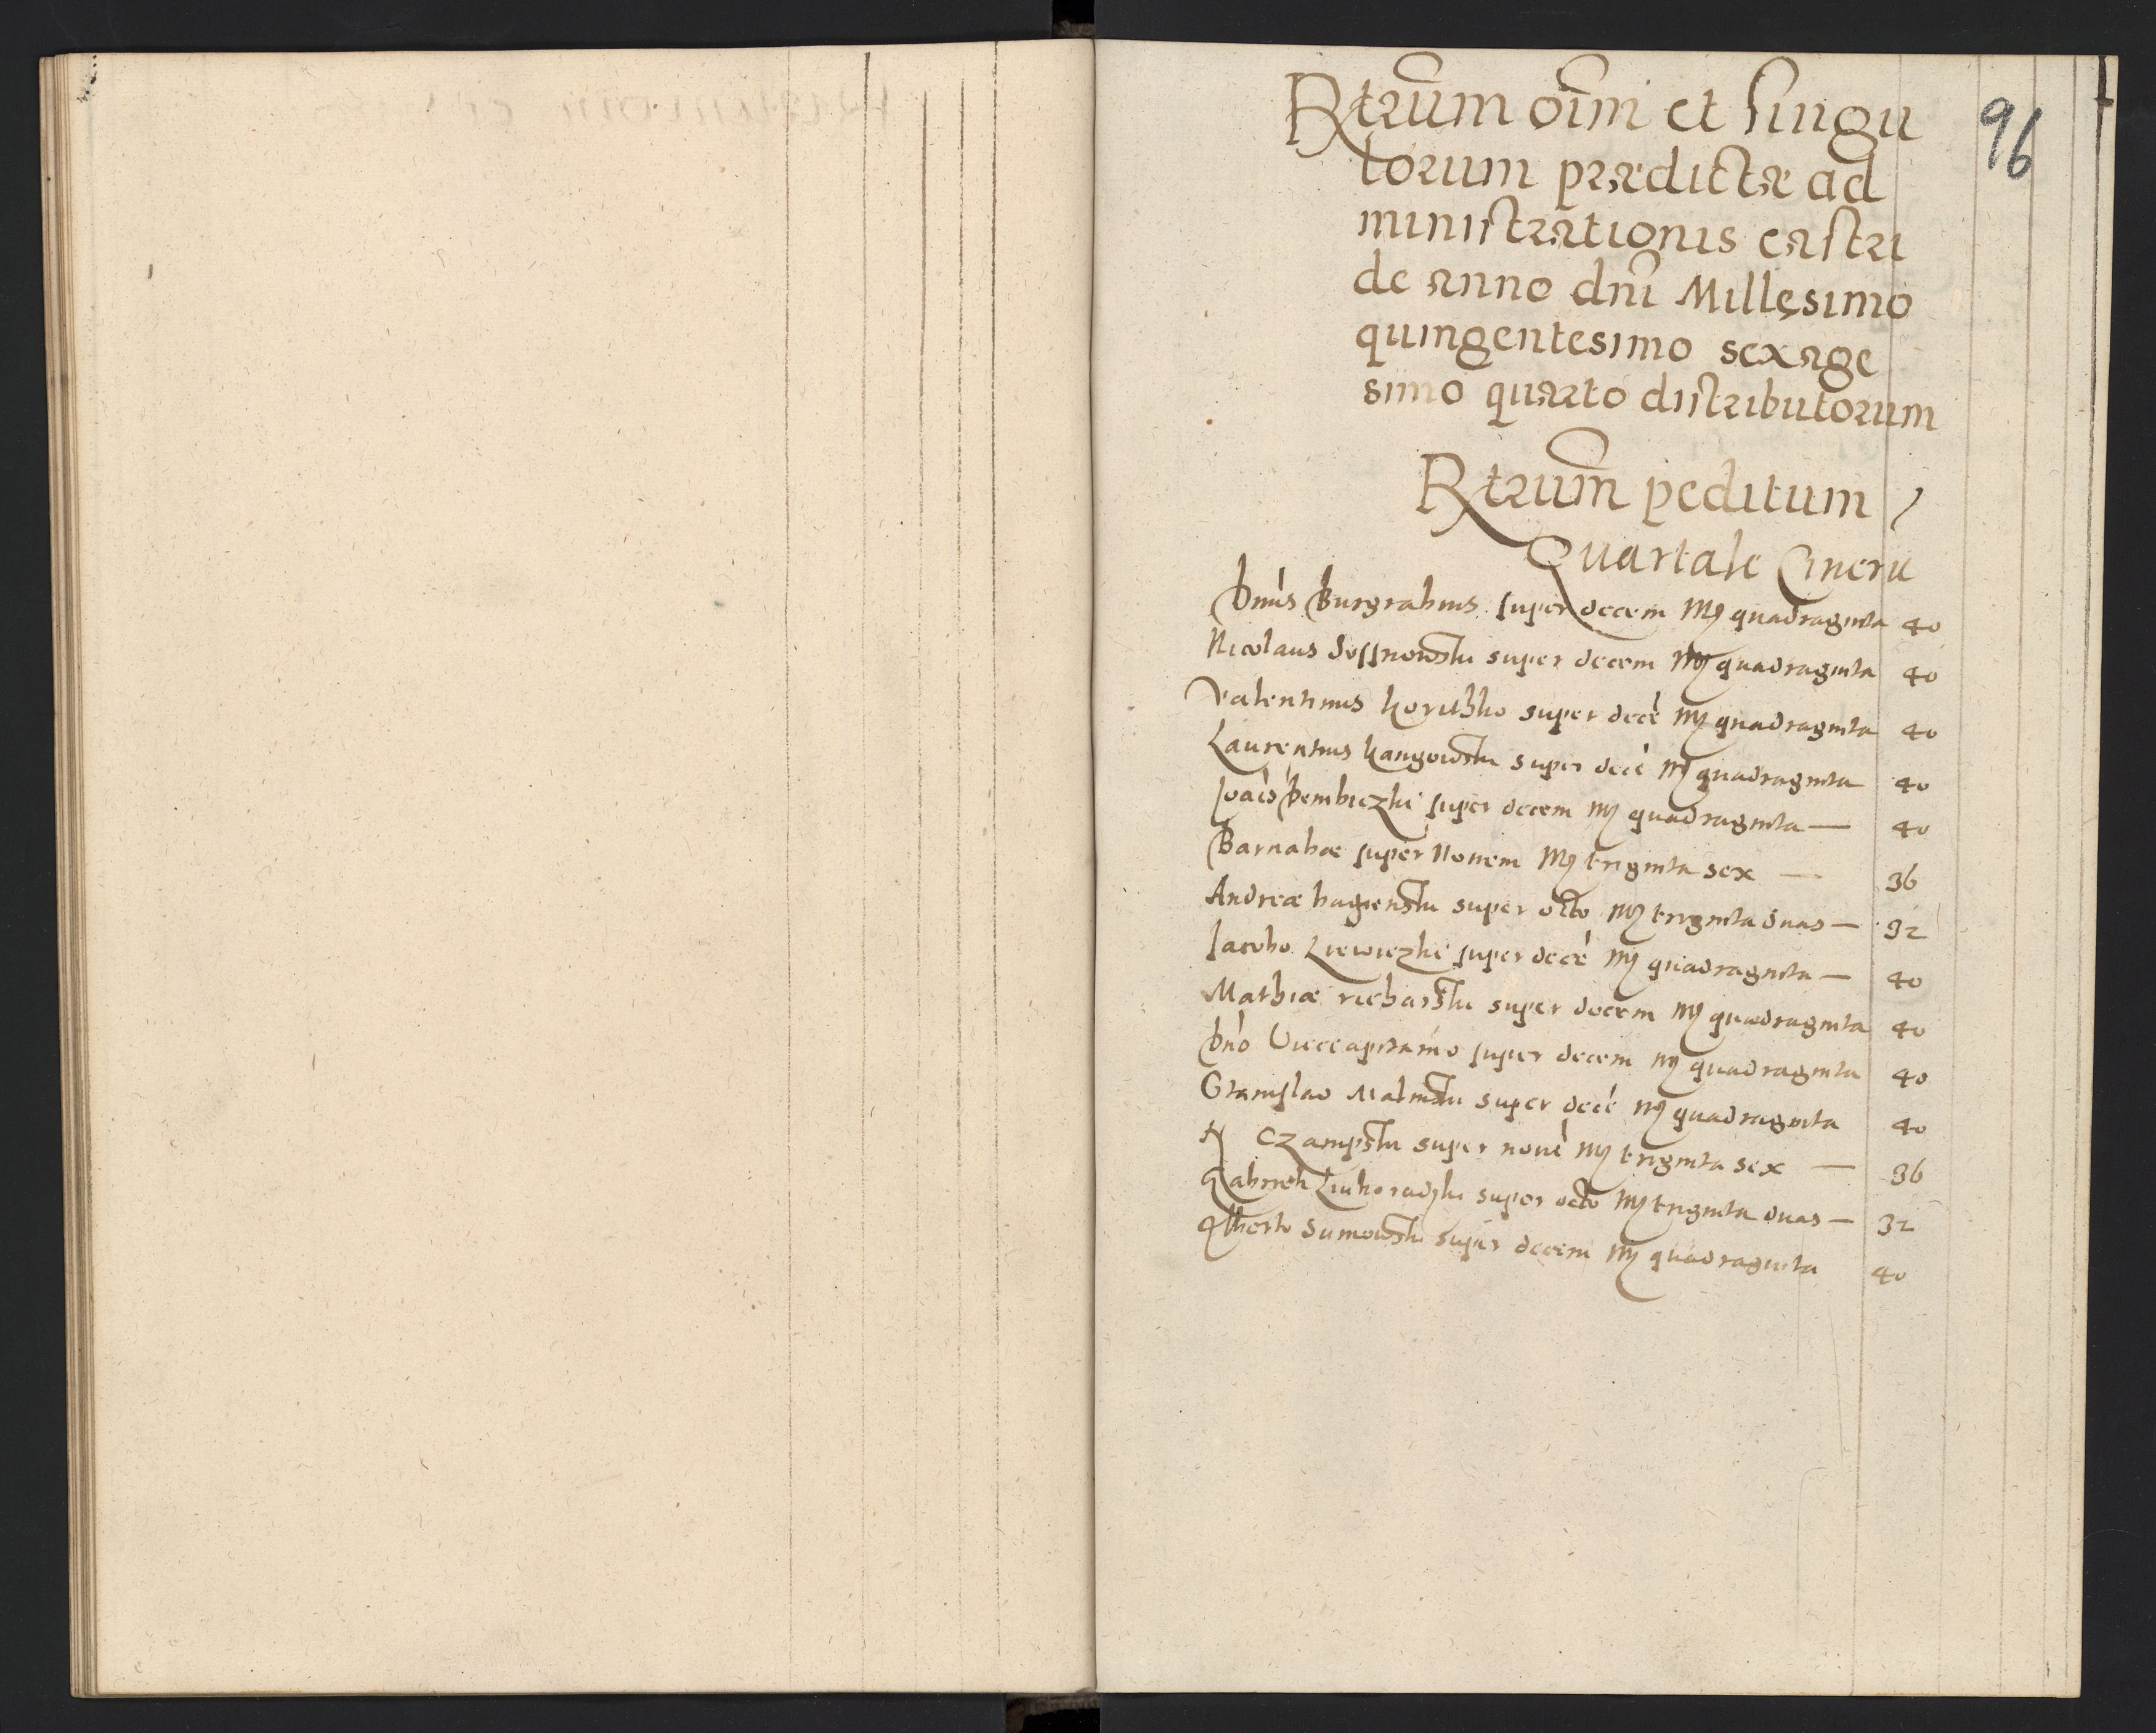 96
Rtrum oim et singu
lorum prædictæ ad
ministrationis castri
de anno dni Millesimo
quingentesimo sexage
simo quarto distributorum
Rtrum peditum
Quartale Cineru
Dnus Burgrabius super decem mr quadraginta 40
Nicolaus Sossnowski super decem mr quadraginta 40
Valentinus Koritzko super dece mr quadraginta 40
Laurentius Kangowski super dece mr quadraginta 40
Joais Dembiczki super decem mr quadraginta — 40
Barnabæ super Nouem mr triginta sex — 36
Andreæ bagienski super octo mr triginta duas — 32
Jacobo Liewiczki super dece mr quadraginta — 40
Mathiæ richarski super decem mr quadraginta 40
Dno Vicecapitaneo super decem mr quadraginta 40
Stanislao Malinski super dece mr quadraginta 40
N Czampski super noue mr triginta sex — 36
Gabrieli Liuboradzki super octo mr triginta duas — 32
Alberto Sumowski super decem mr quadraginta 40